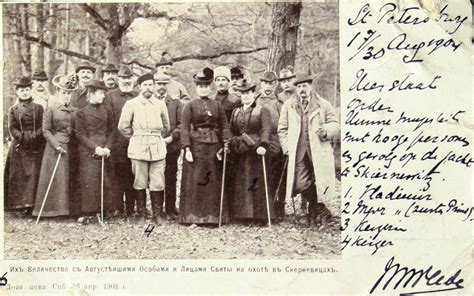 St Petersburg
17/30 Aug 1904
Hier staat
onder
Hunne majesteiten
met hooge personen
en gevolg op de jacht
te Skiernewitz.
1 Vladimir
2 Mevr "
3 Keizerin
4 Keizer
3
2
1
4
Ихъ Величества съ Августѣйшими Особами и Лицами Свиты на охотѣ въ Скерневицахъ.
Дозв. ценз. Спб. 1902 г.